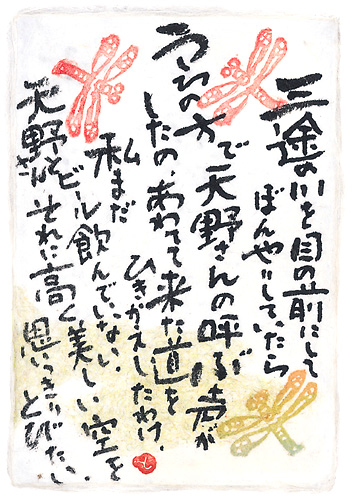 三途の川を目の前にして
ぼんやりしていたら
うしろの方で天野さんの呼ぶ声が
したの、あわてて来た道を
ひきかえしたわけ、
私まだ
天野さんとビール飲んでいない、
それに高く美しい空を
思いっきりとびたい、